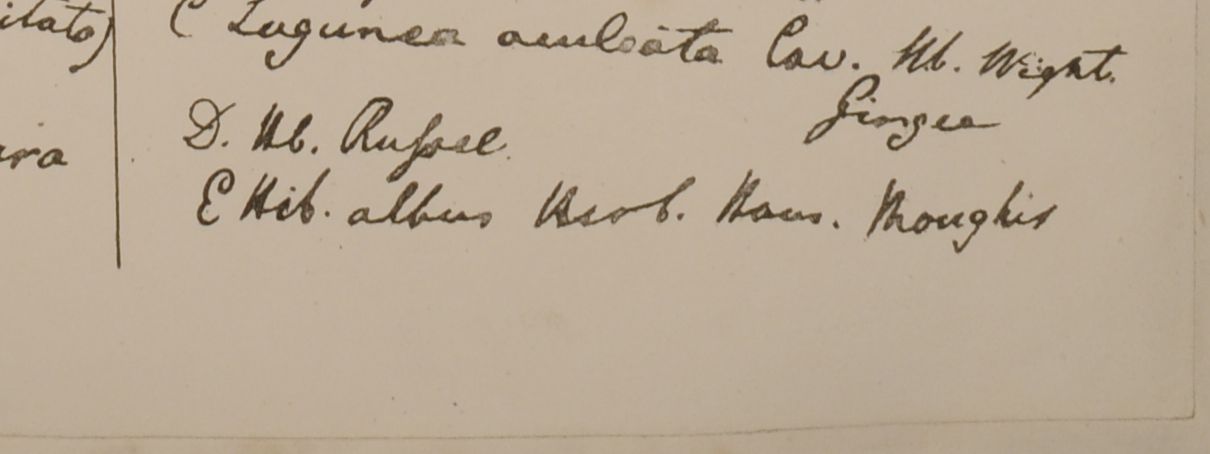 itato)
C Lagunea aculeata Cav. Hb. Wight.
Gingee
D. Hb. Russel
ara
E Hib. albus Herb. Ham.